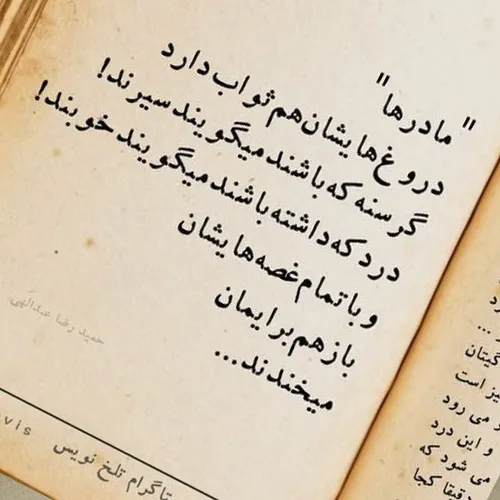 "مادرها"
دروغ‌هایشان هم ثواب دارد
گرسنه که باشند میگویند سیرند!
درد که داشته باشند میگویند خوبند!
و با تمام غصه‌هایشان
باز هم برایمان
میخندند...
حمید رضا عبدالهی
تلخ نویس
...
گیتان
یز است
می رود
و این درد
می شود که
دقیقا کجا